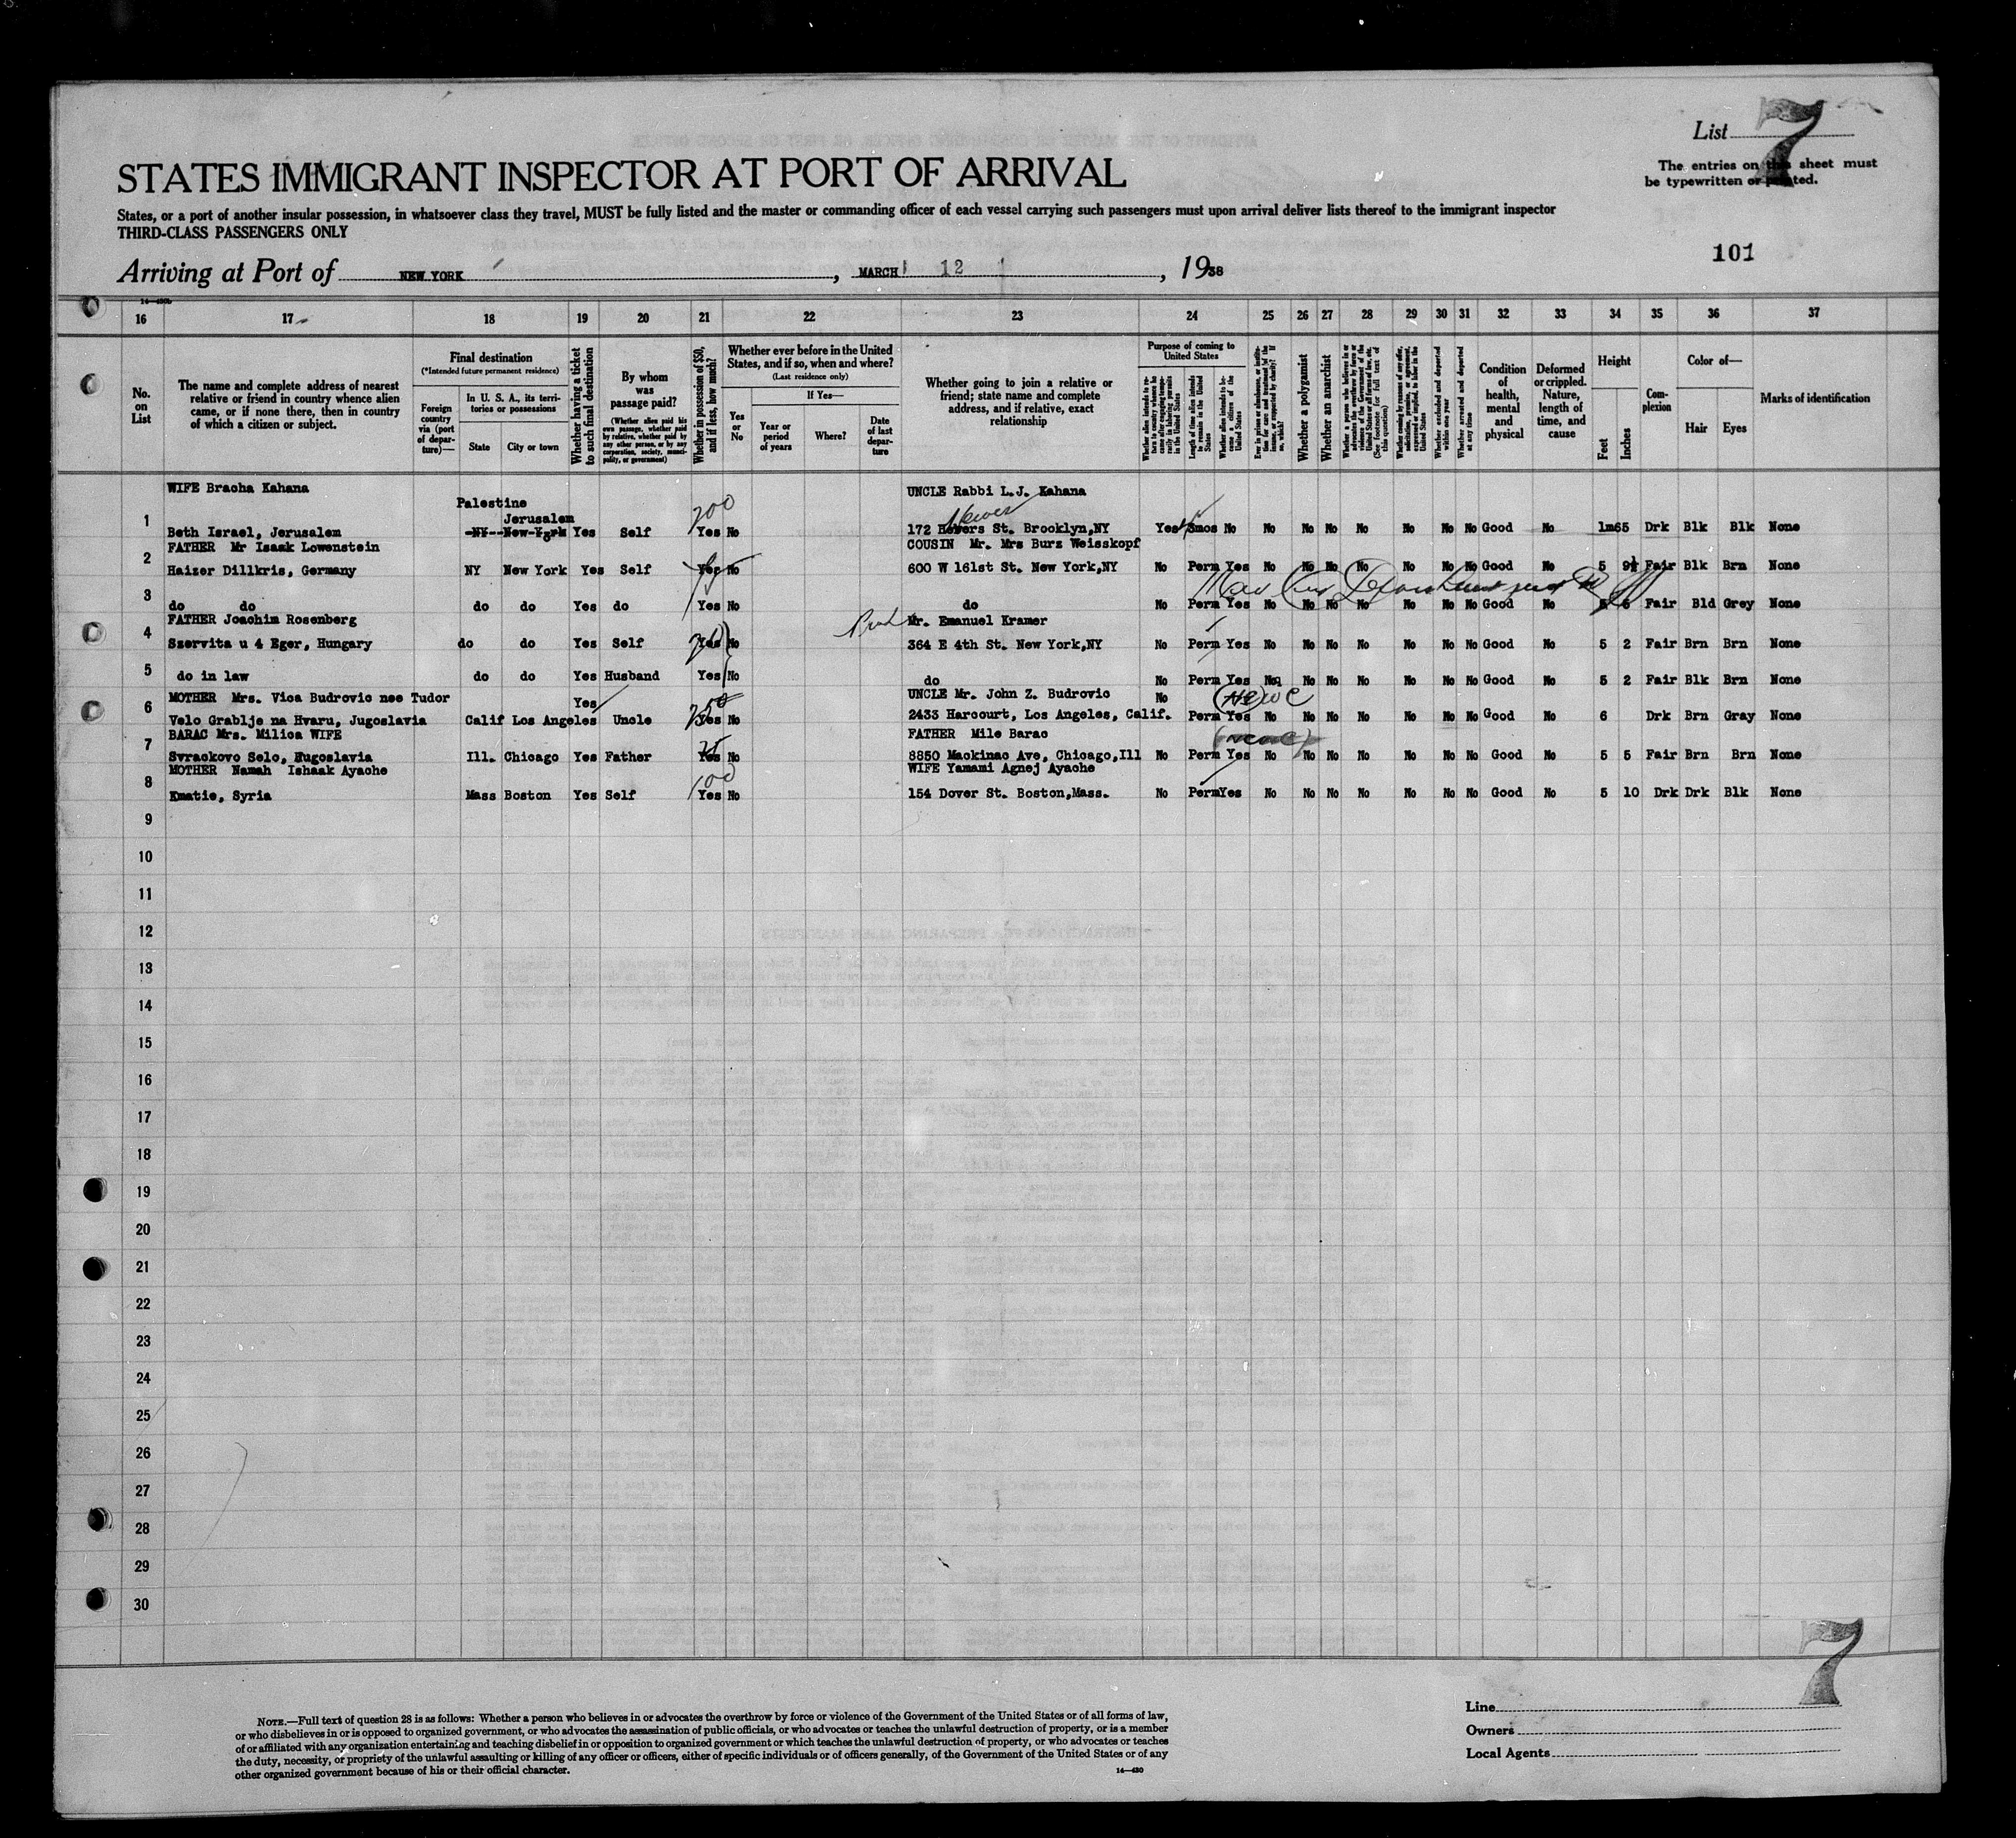 List 7
The entries on this sheet must
be typewritten or printed.
STATES IMMIGRANT INSPECTOR AT PORT OF ARRIVAL
States, or a port of another insular possession, in whatsoever class they travel, MUST be fully listed and the master or commanding officer of each vessel carrying such passengers must upon arrival deliver lists thereof to the immigrant inspector
THIRD-CLASS PASSENGERS ONLY
101
Arriving at Port of NEW YORK, MARCH 12, 1938
16 17 18 19 20 21 22 23 24 25 26 27 28 29 30 31 32 33 34 35 36 37
No. on List
The name and complete address of nearest relative or friend in country whence alien came, or if none there, then in country of which a citizen or subject.
Final destination
(*Intended future permanent residence)
Foreign country via (port of departure)—
In U. S. A., its territories or possessions
State
City or town
Whether having a ticket to such final destination
By whom was passage paid?
(Whether alien paid his own passage, whether paid by relative, whether paid by any other person, or by any corporation, society, municipality, or government)
Whether in possession of $50, and if less, how much?
Whether ever before in the United States, and if so, when and where?
(Last residence only)
Yes or No
If Yes—
Year or period of years
Where?
Date of last departure
Whether going to join a relative or friend; state name and complete address, and if relative, exact relationship
Purpose of coming to United States
Length of time alien intends to remain in the United States
Whether alien intends to become a citizen of the United States
Whether a polygamist
Whether an anarchist
Whether excluded and deported within one year
Whether arrested and deported at any time
Condition of health, mental and physical
Deformed or crippled. Nature, length of time, and cause
Height
Feet
Inches
Complexion
Color of—
Hair
Eyes
Marks of identification
WIFE Bracha Kahana UNCLE Rabbi L.J. Kahana
Palestine
Jerusalem 200
1 Beth Israel, Jerusalem NY New York Yes Self Yes No 172 Hewers St. Brooklyn,NY Yes 3mos No No No No No No No No Good No 1m65 Drk Blk Blk None
FATHER Mr Isaak Lowenstein COUSIN Mr. Mrs Burz Weisskopf
2 Haizer Dillkris, Germany NY New York Yes Self Yes No 600 W 161st St. New York,NY No Perm Yes No No No No No No No Good No 5 9½ Fair Blk Brn None
3 do do do do Yes do Yes No do No Perm Yes No No No No No No No Good No 5 Fair Bld Grey None
FATHER Joachim Rosenberg Mr. Emanuel Kramer
4 Szervita u 4 Eger, Hungary do do Yes Self Yes No 364 E 4th St. New York,NY No Perm Yes No No No No No No No Good No 5 2 Fair Brn Brn None
5 do in law do do Yes Husband Yes No do No Perm Yes No No No No No No No Good No 5 2 Fair Blk Brn None
MOTHER Mrs. Vica Budrovic nee Tudor Yes UNCLE Mr. John Z. Budrovic No
6 Velo Grablje na Hvaru, Jugoslavia Calif Los Angeles Uncle Yes No 2433 Harcourt, Los Angeles, Calif. Perm Yes No No No No No No No Good No 6 Drk Brn Gray None
BARAC Mrs. Milica WIFE FATHER Mile Barac
7 Svrackovo Selo, Yugoslavia Ill. Chicago Yes Father Yes No 8850 Mackinac Ave, Chicago,Ill No Perm Yes No No No No No No No Good No 5 5 Fair Brn Brn None
MOTHER Namah Ishaak Ayache 100 WIFE Yamami Agnej Ayache
8 Kmatie, Syria Mass Boston Yes Self Yes No 154 Dover St. Boston,Mass. No Perm Yes No No No No No No No Good No 5 10 Drk Drk Blk None
9
10
11
12
13
14
15
16
17
18
19
20
21
22
23
24
25
26
27
28
29
30
7
NOTE.—Full text of question 28 is as follows: Whether a person who believes in or advocates the overthrow by force or violence of the Government of the United States or of all forms of law,
or who disbelieves in or is opposed to organized government, or who advocates the assassination of public officials, or who advocates or teaches the unlawful destruction of property, or is a member
of or affiliated with any organization entertaining and teaching disbelief in or opposition to organized government or which teaches the unlawful destruction of property, or who advocates or teaches
the duty, necessity, or propriety of the unlawful assaulting or killing of any officer or officers, either of specific individuals or of officers generally, of the Government of the United States or of any
other organized government because of his or their official character.
14—430
Line
Owners
Local Agents